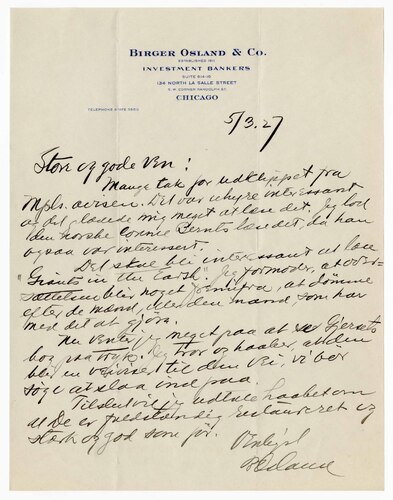 BIRGER OSLAND & CO.
ESTABLISHED 1911
INVESTMENT BANKERS
SUITE 614-16
134 NORTH LA SALLE STREET
S. W. CORNER RANDOLPH ST.
CHICAGO
TELEPHONE STATE
5/3.27
Store og gode Ven!
Mange tak for udklippet fra
Mpls. avisen. Det var uhyre interessant
og det glædede mig meget at læse det. Jeg lod
den norske læse det, da han
ogsaa var interessert.
Det skal bli interessant at læse
"Giants in the Earth". Jeg formoder, at over-
sættelsen blir noget fremifra, at dømme
efter de mænd, eller den mand, som har
med det at gjøre.
Nu venter jeg meget paa at se Gjersets
bog paa tryk. Jeg tror og haaber, at den
blir en veiviser til den vei, vi bør
søge at slaa ind paa.
Tilslut vil jeg udtale haabet om
at De er fuldstændig restaureret og
stærk og god som før.
Venligst
B Osland